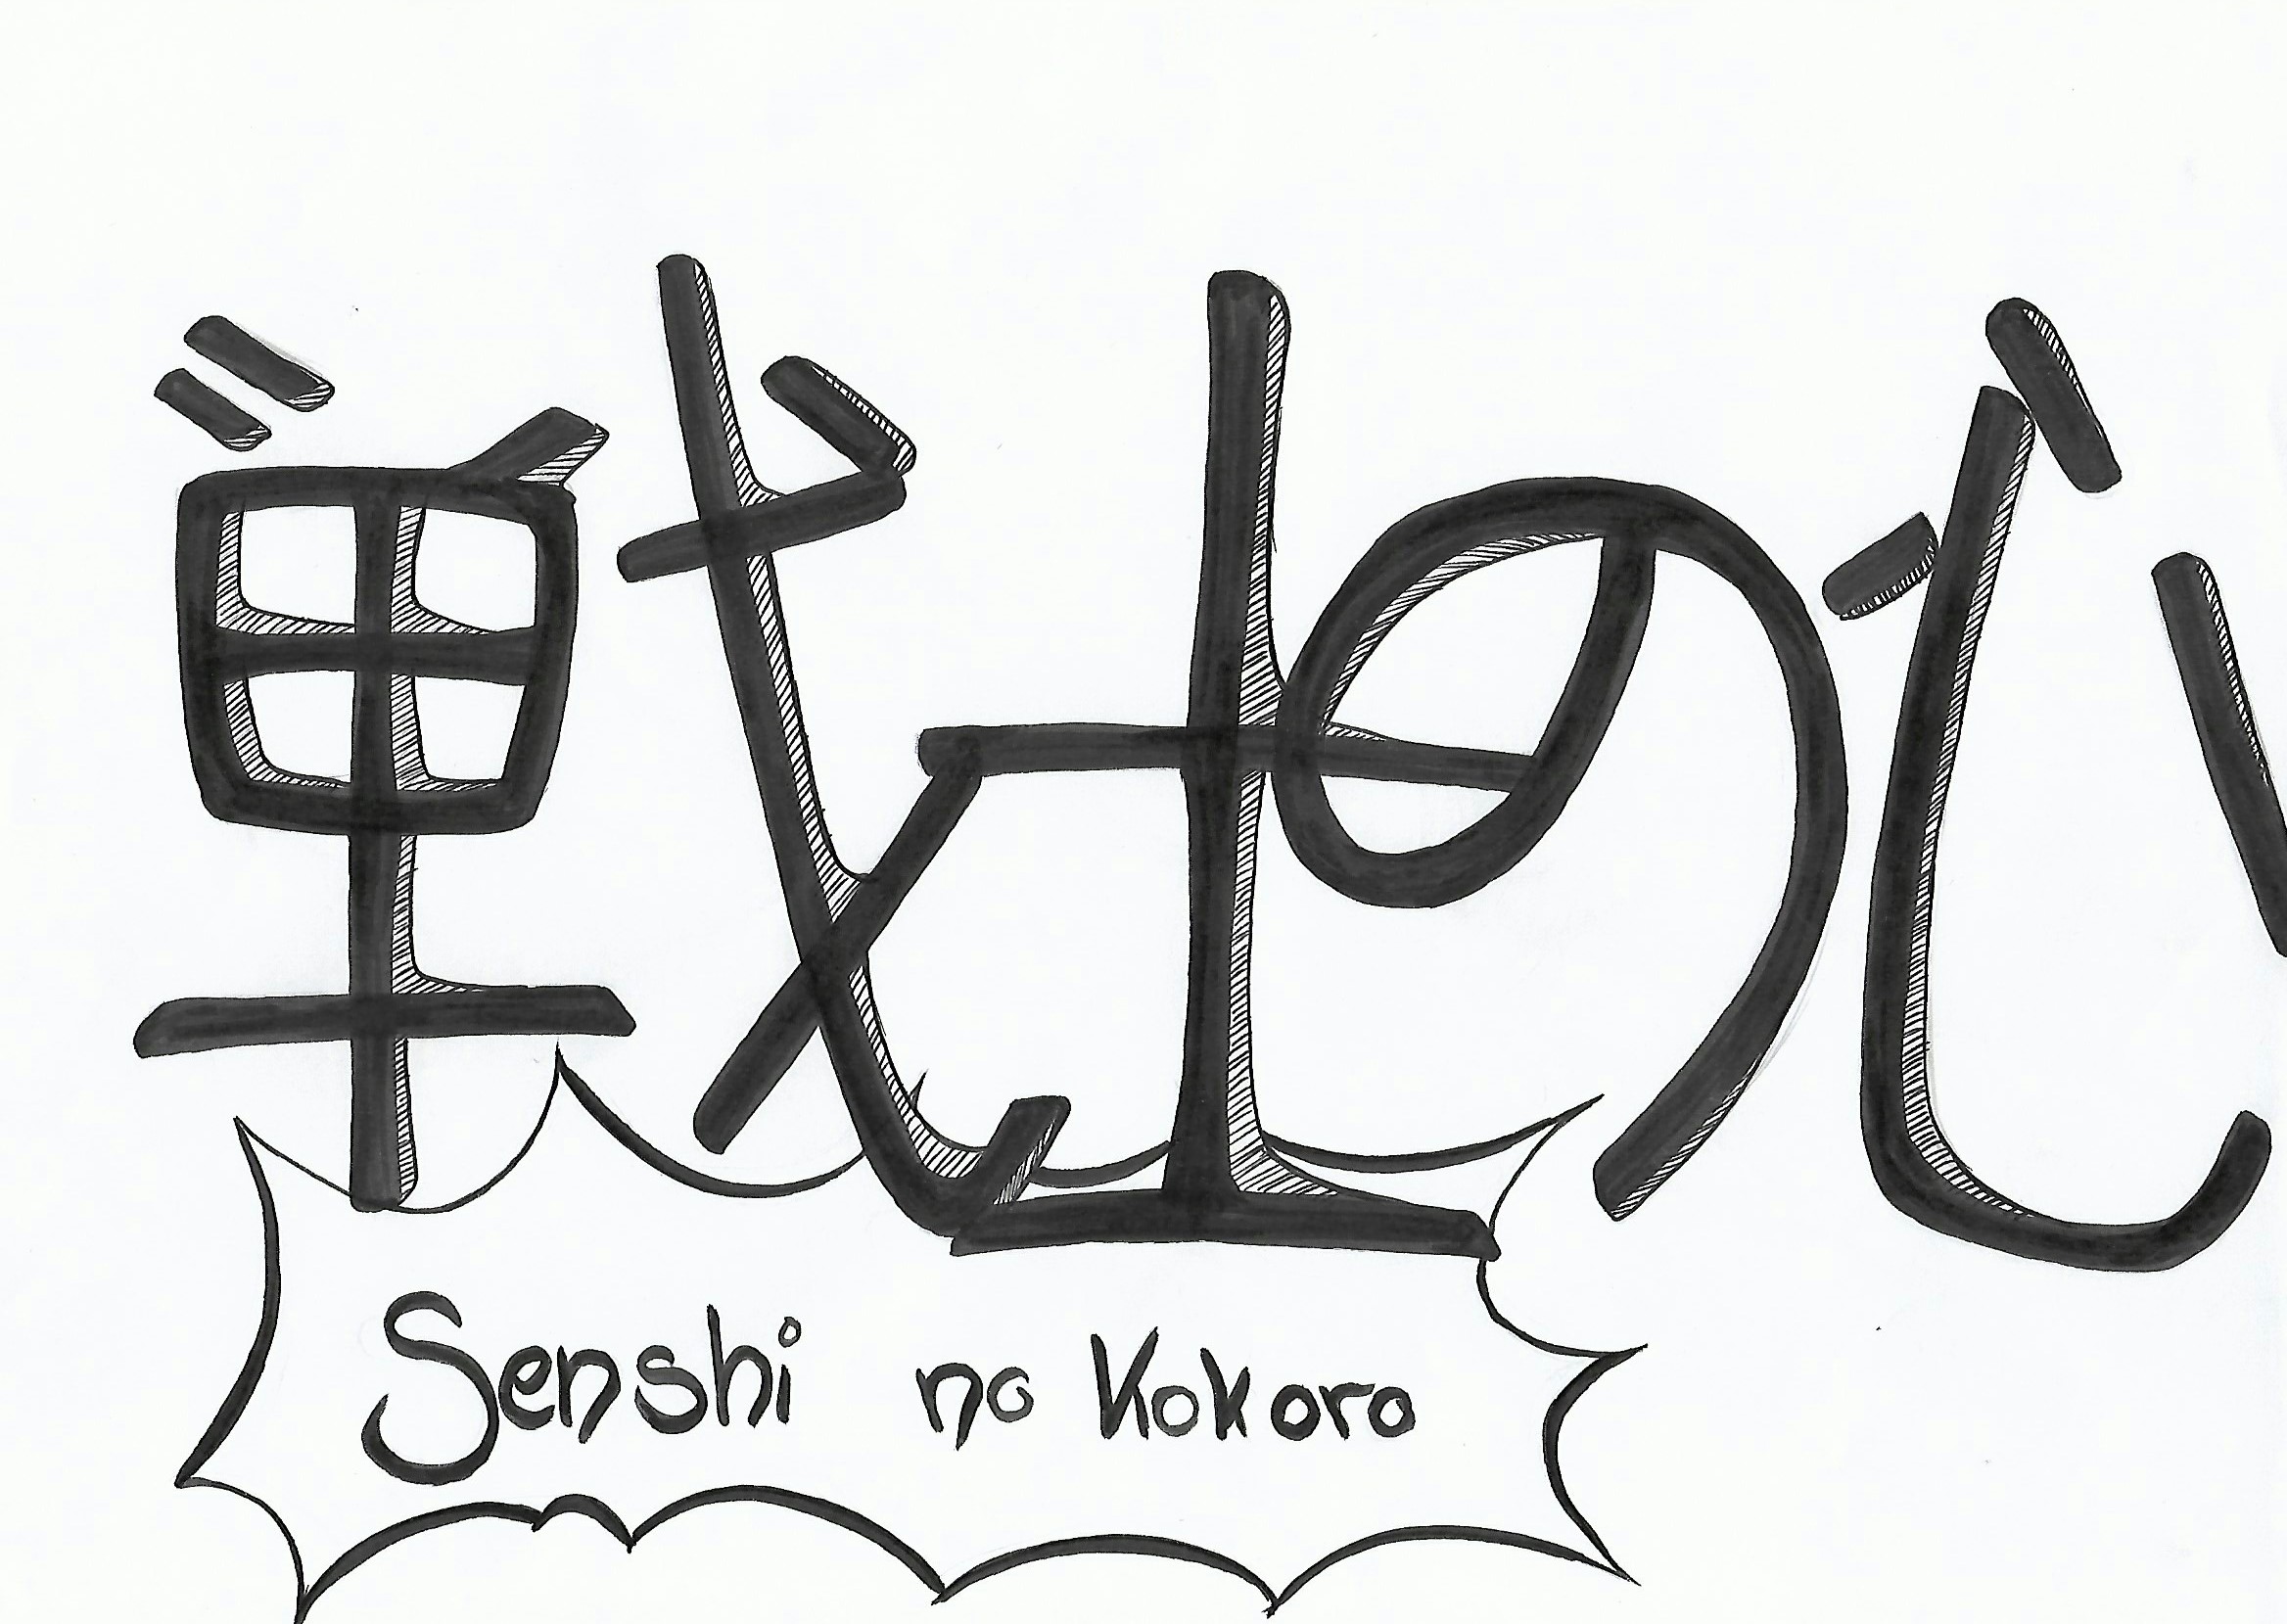 戦士の心
Senshi no Kokoro